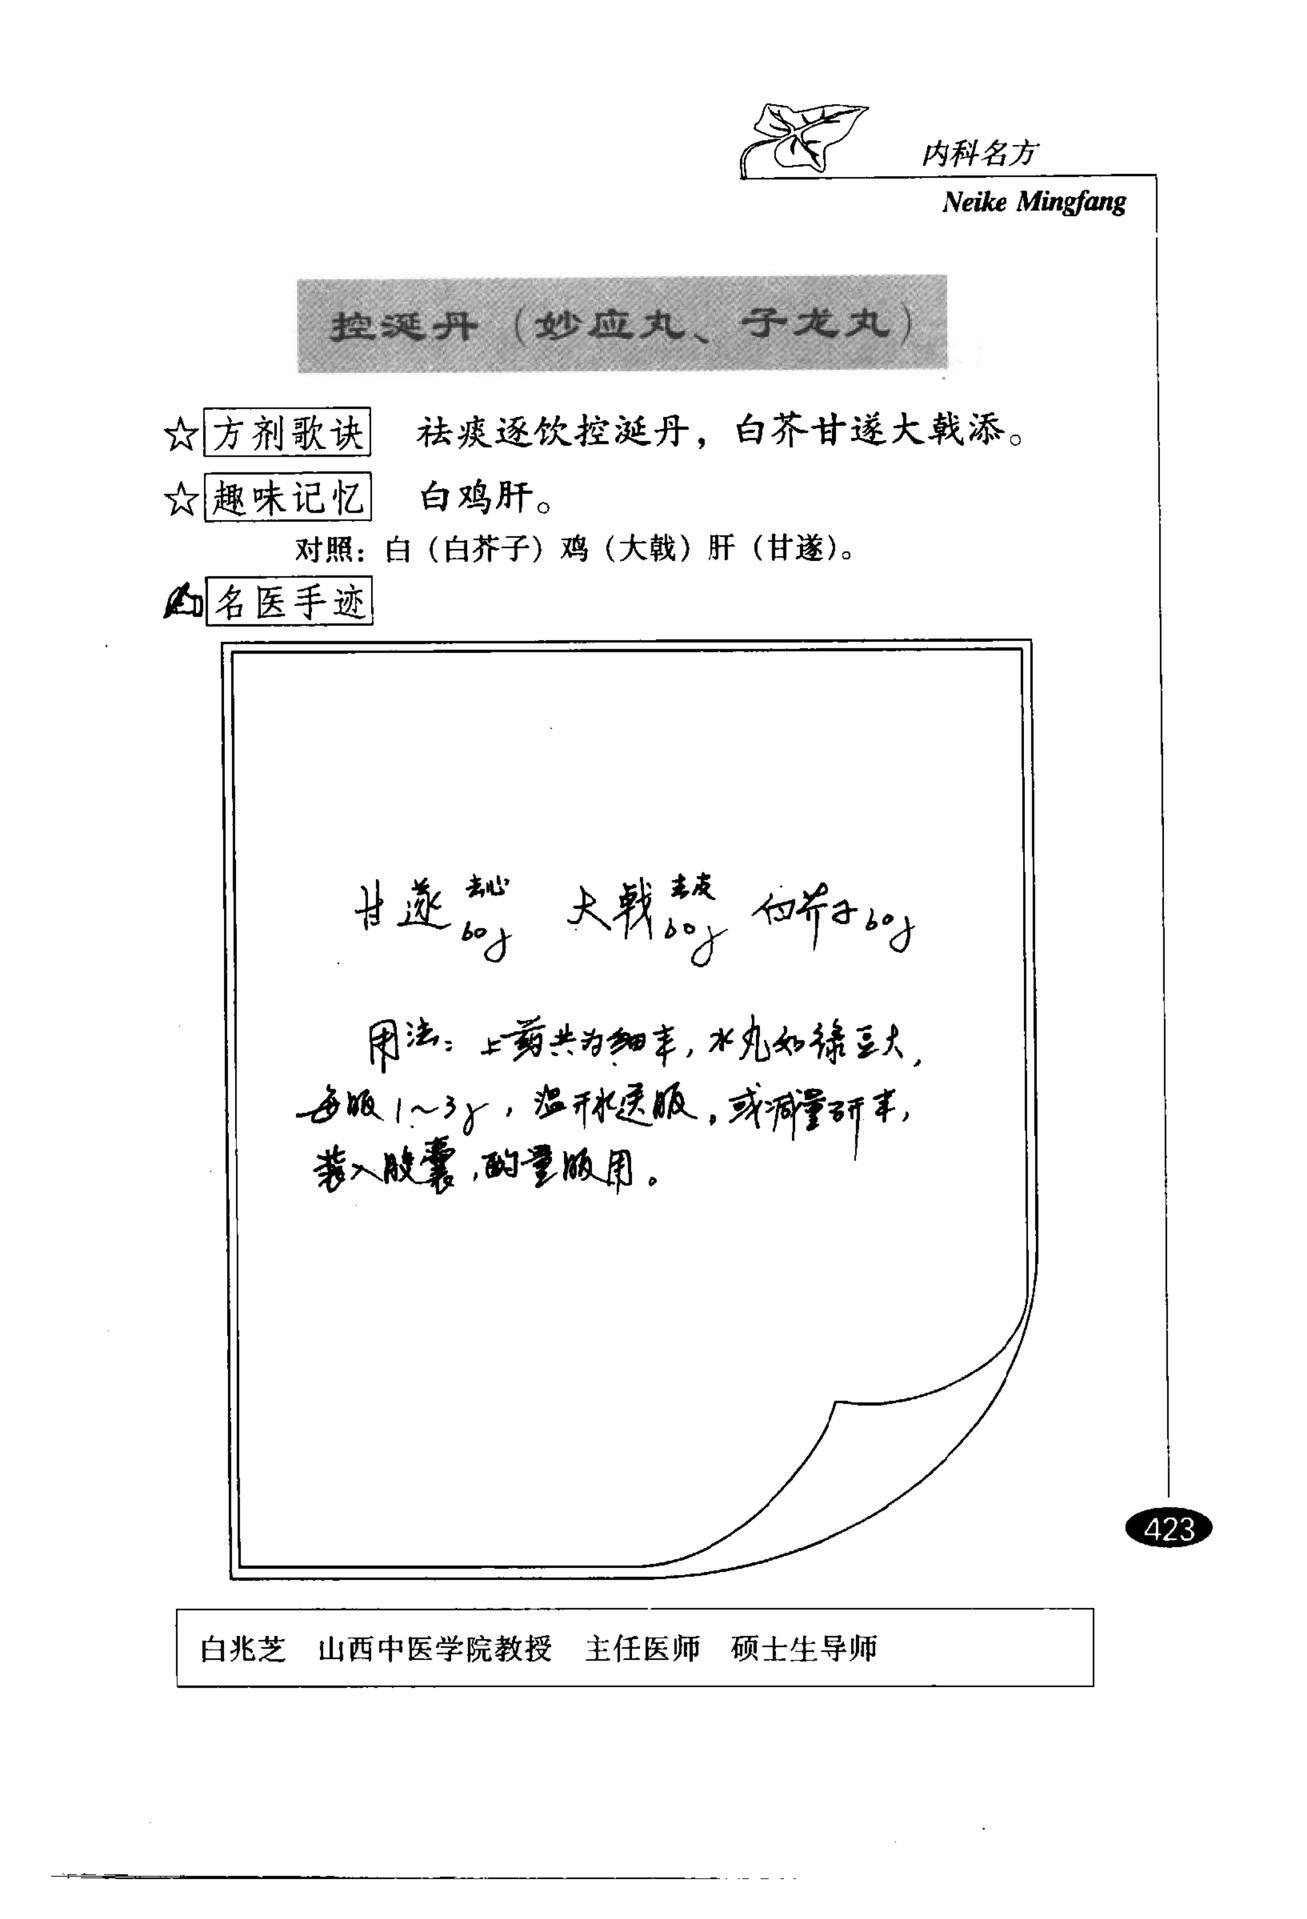 内科名方
Neike Mingfang
控涎丹（妙应丸、子龙丸）
☆方剂歌诀 祛痰逐饮控涎丹，白芥甘遂大戟添。
☆趣味记忆 白鸡肝。
对照：白（白芥子）鸡（大戟）肝（甘遂）。
名医手迹
甘遂去心60g 大戟去皮60g 白芥子60g
用法：上药共为细末，水丸如绿豆大，
每服1～3g，温开水送服。或减量研末，
装入胶囊，酌量服用。
423
白兆芝 山西中医学院教授 主任医师 硕士生导师